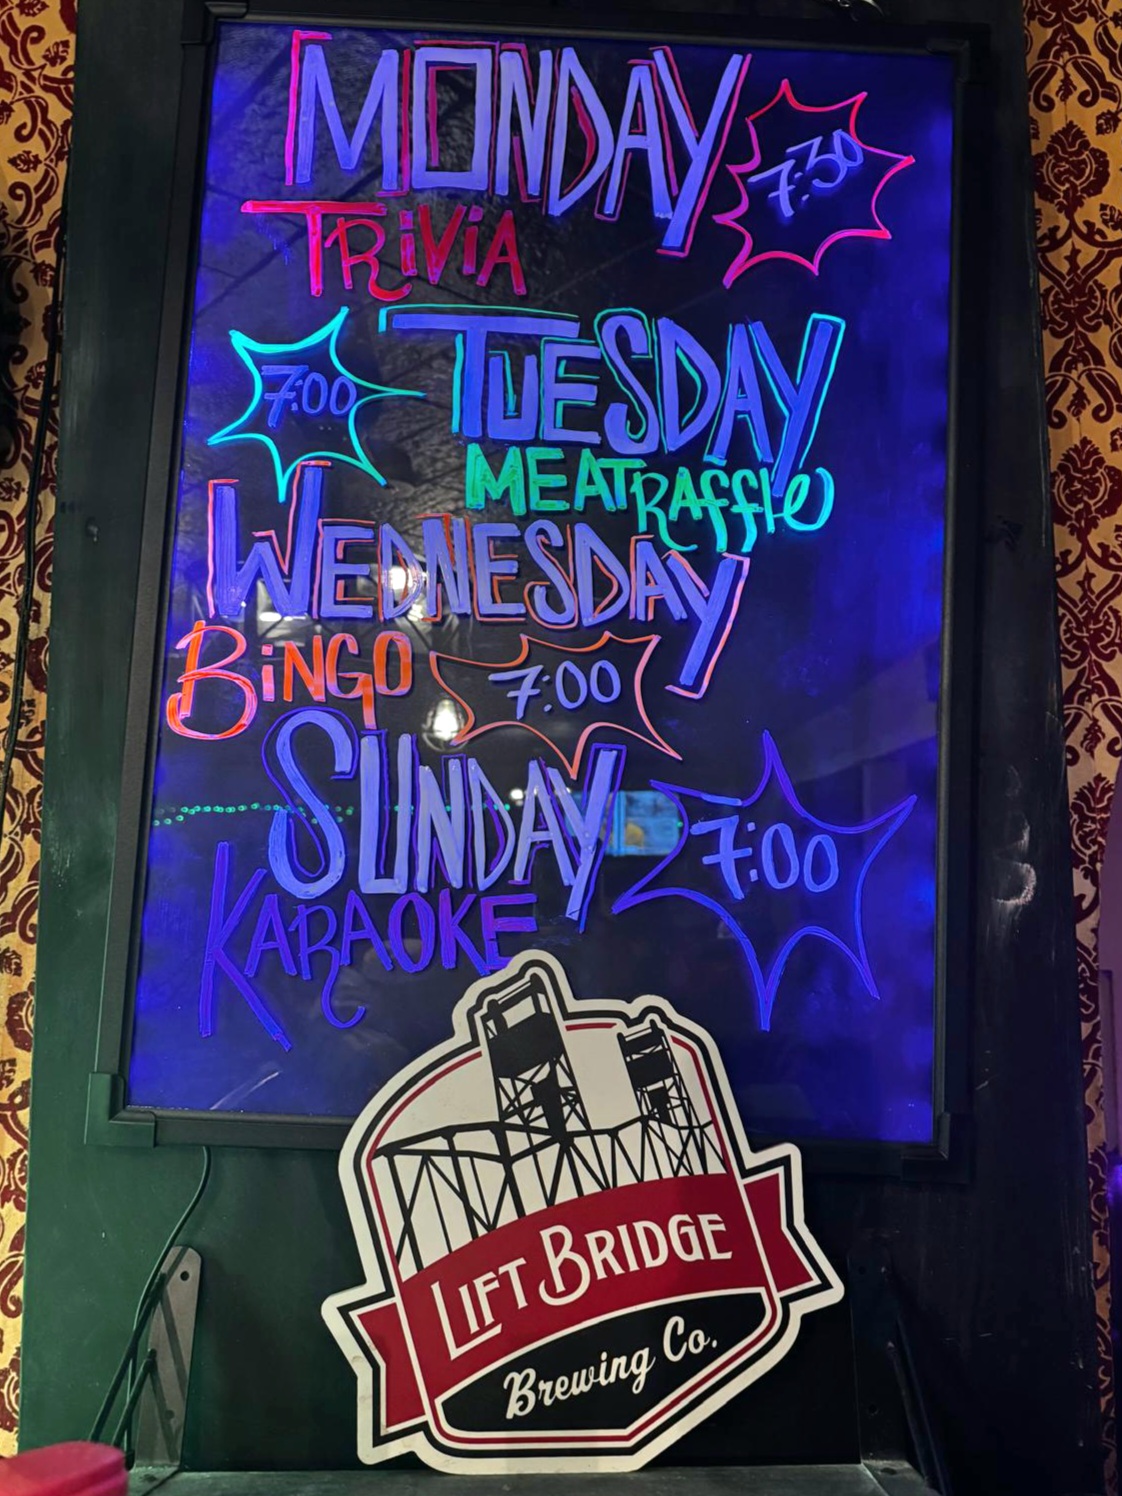 MONDAY
7:30
TRiViA
TUESDAY
7:00
MEAT RAffle
WEDNESDAY
BiNGO
7:00
SUNDAY
7:00
KARAOKE
LIFT BRIDGE
Brewing Co.